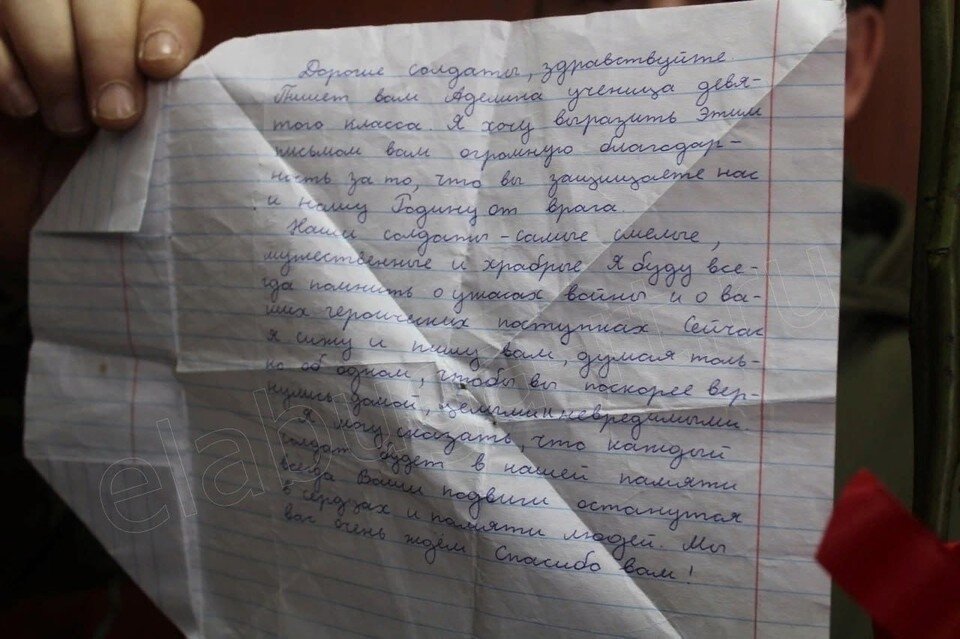 Дорогие солдаты, здравствуйте.
Пишет вам Аделина ученица девя-
того класса. Я хочу выразить этим
письмом вам огромную благодар-
ность за то, что вы защищаете нас
и нашу Родину от врага.
Наши солдаты - самые смелые,
мужественные и храбрые Я буду все-
гда помнить о ужасах войны и о ва-
ших героических поступках Сейчас
я сижу и пишу вам, думая толь-
ко об одном, чтобы вы поскорее вер-
нулись домой, целыми и невредимыми.
Я могу сказать, что каждый
солдат будет в нашей памяти
всегда Ваши подвиги останутся
в сердцах и памяти людей. Мы
вас очень ждём Спасибо вам!